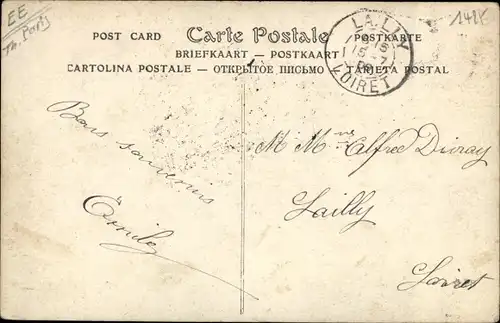 EE
Th. Paris
1418
POST CARD Carte Postale POSTKARTE
BRIEFKAART — POSTKAART
CARTOLINA POSTALE — ОТКРЫТОЕ ПИСЬМО — TARJETA POSTAL
LAILLY
LOIRET
Bons souvenirs
Émile
M Mme Alfred Duvay
Lailly
Loiret